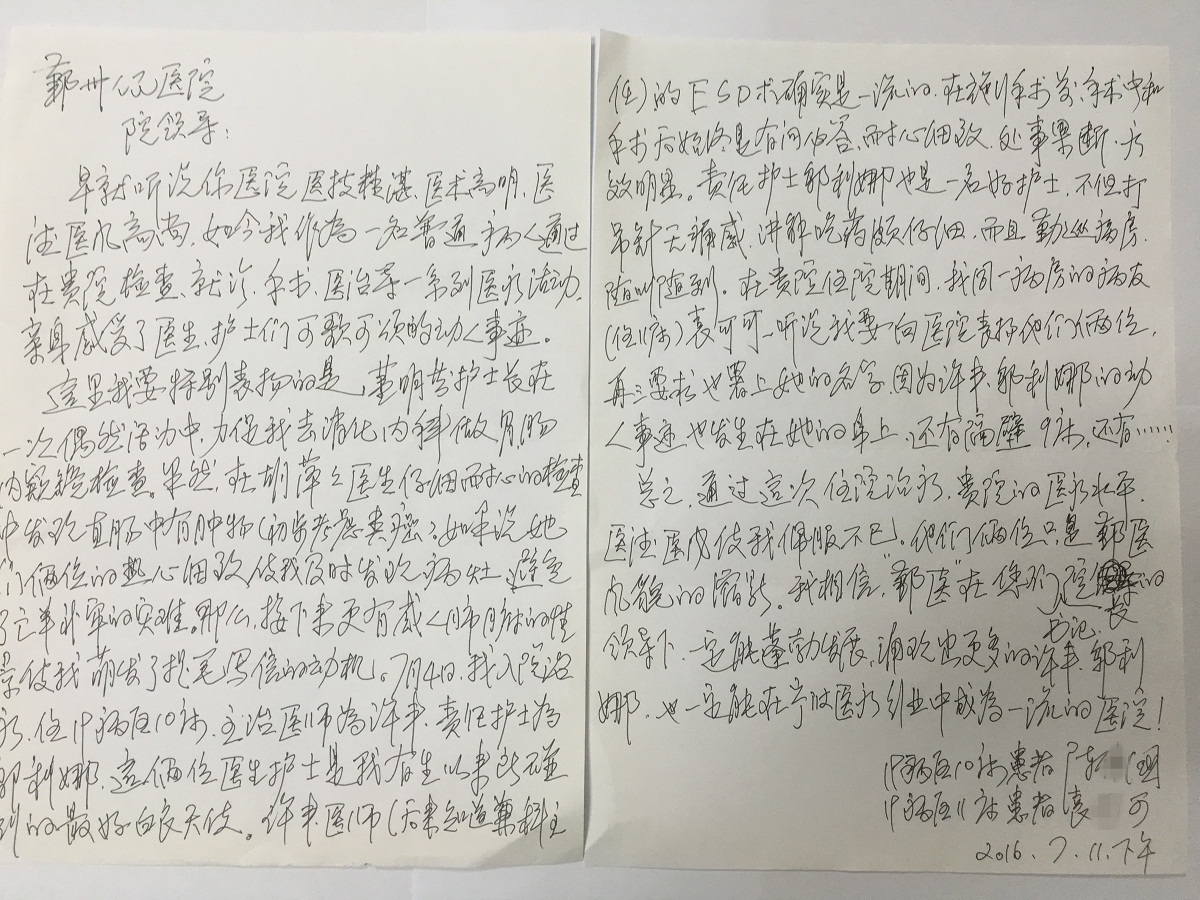 鄞州人民医院
院领导：
早就听说你医院医技精湛、医术高明、医
德医风高尚，如今我作为一名普通病人通过
在贵院检查、就诊、手术、医治等一系列医疗活动，
亲身感受了医生、护士们可歌可颂的动人事迹。
这里我要特别表扬的是，董明芳护士长在
一次偶然活动中，力促我去消化内科做胃肠
内窥镜检查。果然，在胡萍之医生仔细耐心的检查
中发现直肠中有肿物（初步考虑类癌）。如果说她
们俩位的热心细致使我及时发现病灶，避免
了亡羊补牢的灾难。那么，接下来更有感人肺腑的情
景使我萌发了提笔写信的动机。7月4日，我入院治
疗，住19病区10床，主治医师为许丰，责任护士为
郭利娜，这俩位医生护士是我有生以来所碰
到的最好白衣天使。许丰医师（后来知道兼科主
任）的ESD术确实是一流的，在施行手术前、手术中和
手术后始终是有问必答，而耐心细致，处事果断，疗
效明显。责任护士郭利娜也是一名好护士，不但打
吊针无痛感，讲解吃药颇仔细，而且勤巡病房，
随叫随到。在贵院住院期间，我同一病房的病友
（住11床）袁可可一听说我要向医院表扬他们俩位，
再三要求也署上她的名字，因为许丰、郭利娜的动
人事迹也发生在她的身上，还有隔壁9床，还有……
总之，通过这次住院治疗，贵院的医疗水平，
医德医风使我佩服不已。他们俩位只是鄞医
风貌的缩影。我相信，“鄞医”在您们院长、书记的
领导下，一定能蓬勃发展，涌现出更多的许丰、郭利
娜，也一定能在宁波医疗创业中成为一流的医院！
19病区10床患者 陈 国
19病区11床患者 袁 可
2016.7.11.下午